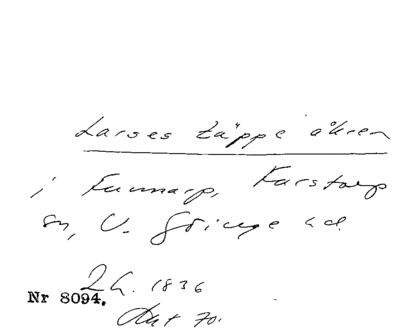 Larses täppe åkren
i Funnarp, Farstorp
sn, V. Göinge hd.
Lh. 1836
Nr 8094.
Akt 70.